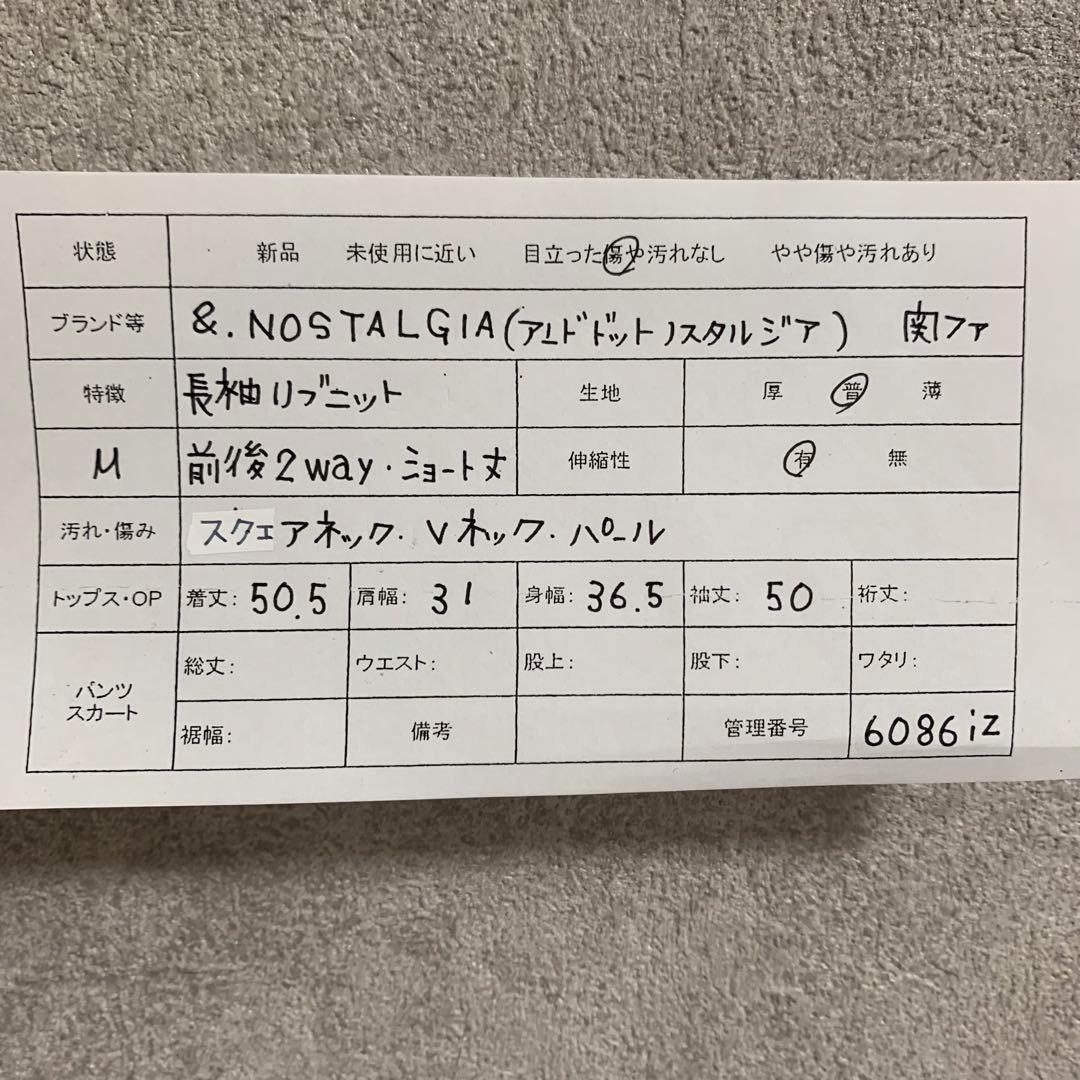 状態 新品 未使用に近い 目立った傷や汚れなし やや傷や汚れあり
ブランド等 &.NOSTALGIA(アンドドットノスタルジア) 関ファ
特徴 長袖リブニット 生地 厚 普 薄
M 前後2way・ショート丈 伸縮性 有 無
汚れ・傷み スクエアネック・Vネック・パール
トップス・OP 着丈:50.5 肩幅:31 身幅:36.5 袖丈:50 裄丈:
パンツ スカート 総丈: ウエスト: 股上: 股下: ワタリ:
裾幅: 備考 管理番号 6086iz